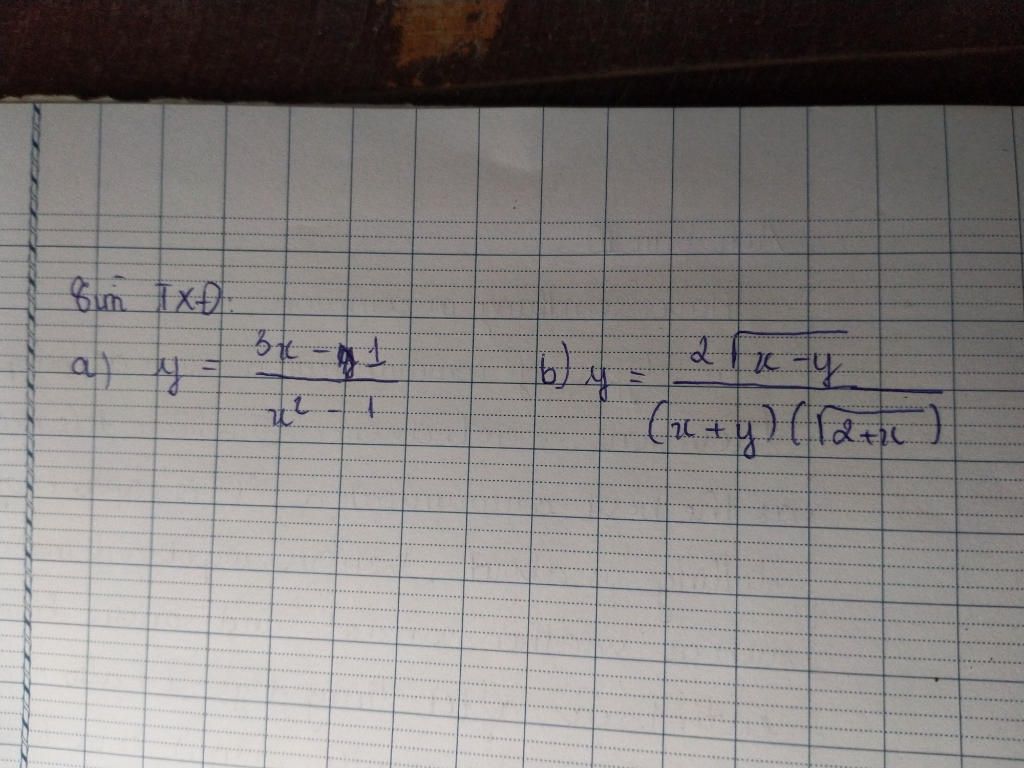 Tìm TXĐ:
a) y = (3x - 1) / (x² - 1) b) y = (2√(x - y)) / ((x + y)(√(2 + x)))